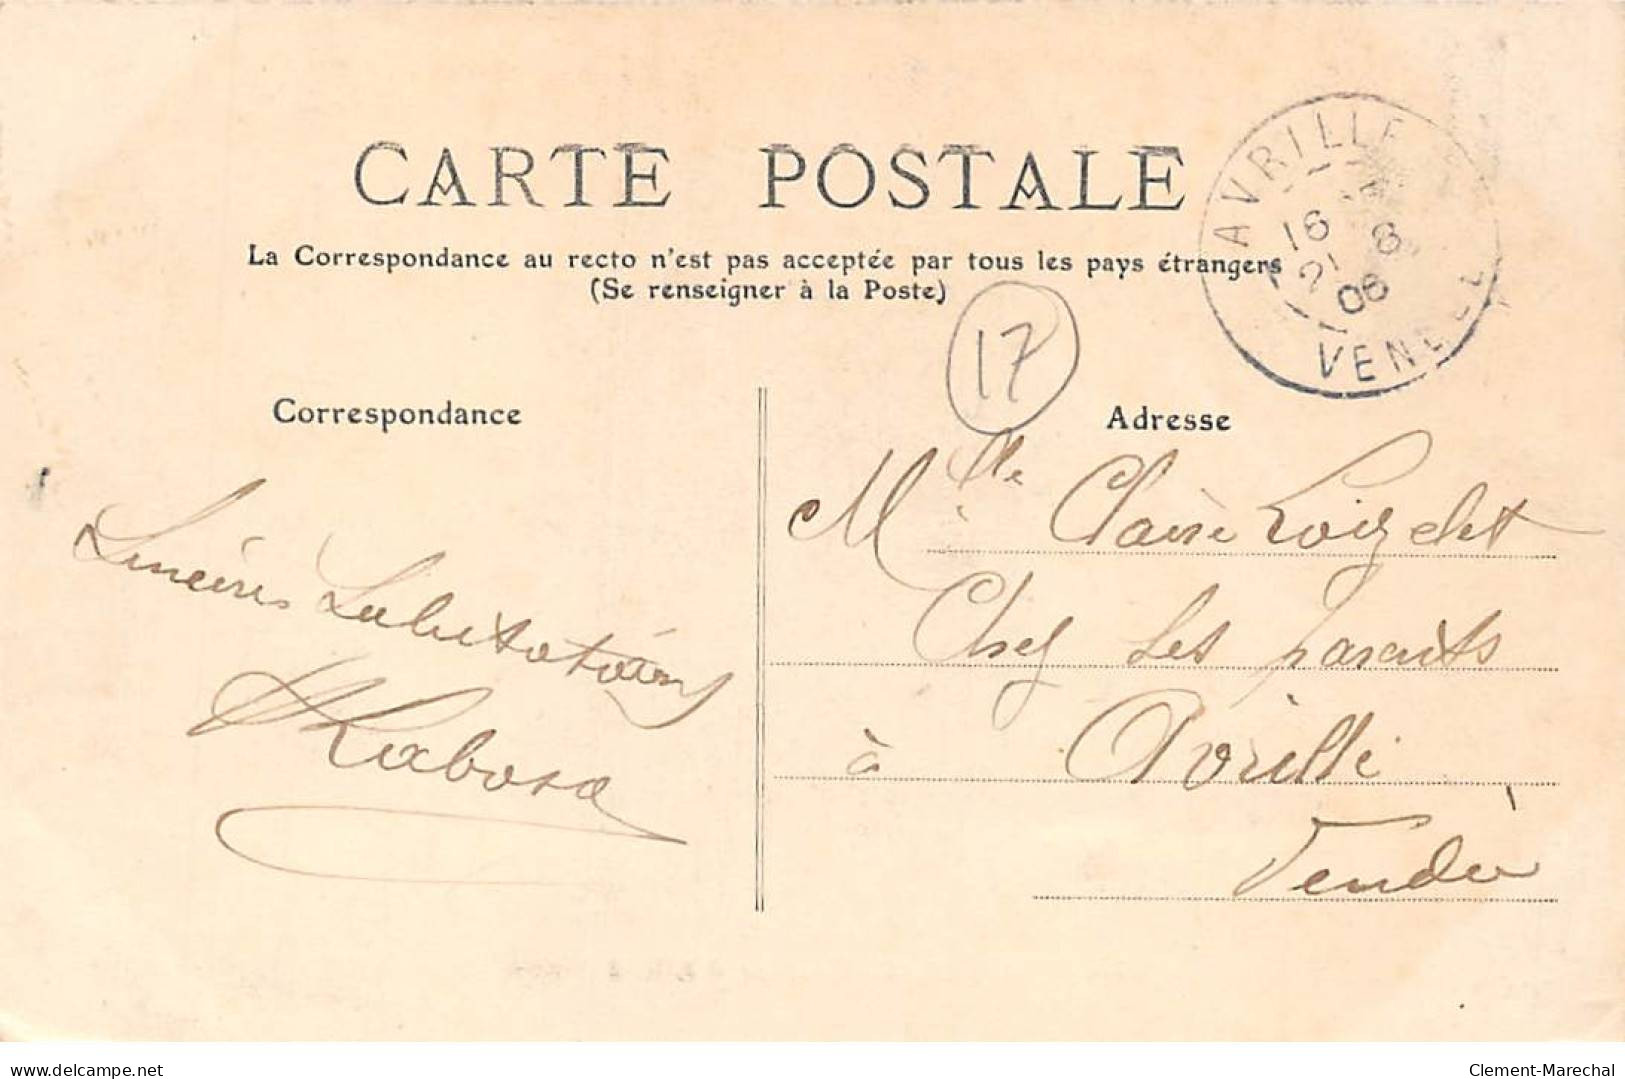 CARTE POSTALE
La Correspondance au recto n'est pas acceptée par tous les pays étrangers
(Se renseigner à la Poste)
AVRILLE
16
21 8
06
VENDEE
17
Correspondance
Adresse
Sincères Salutations
Mlle Claire Loizelet
Chez ses parents
à Avrillé
Vendée
www.delcampe.net
Clement-Marechal